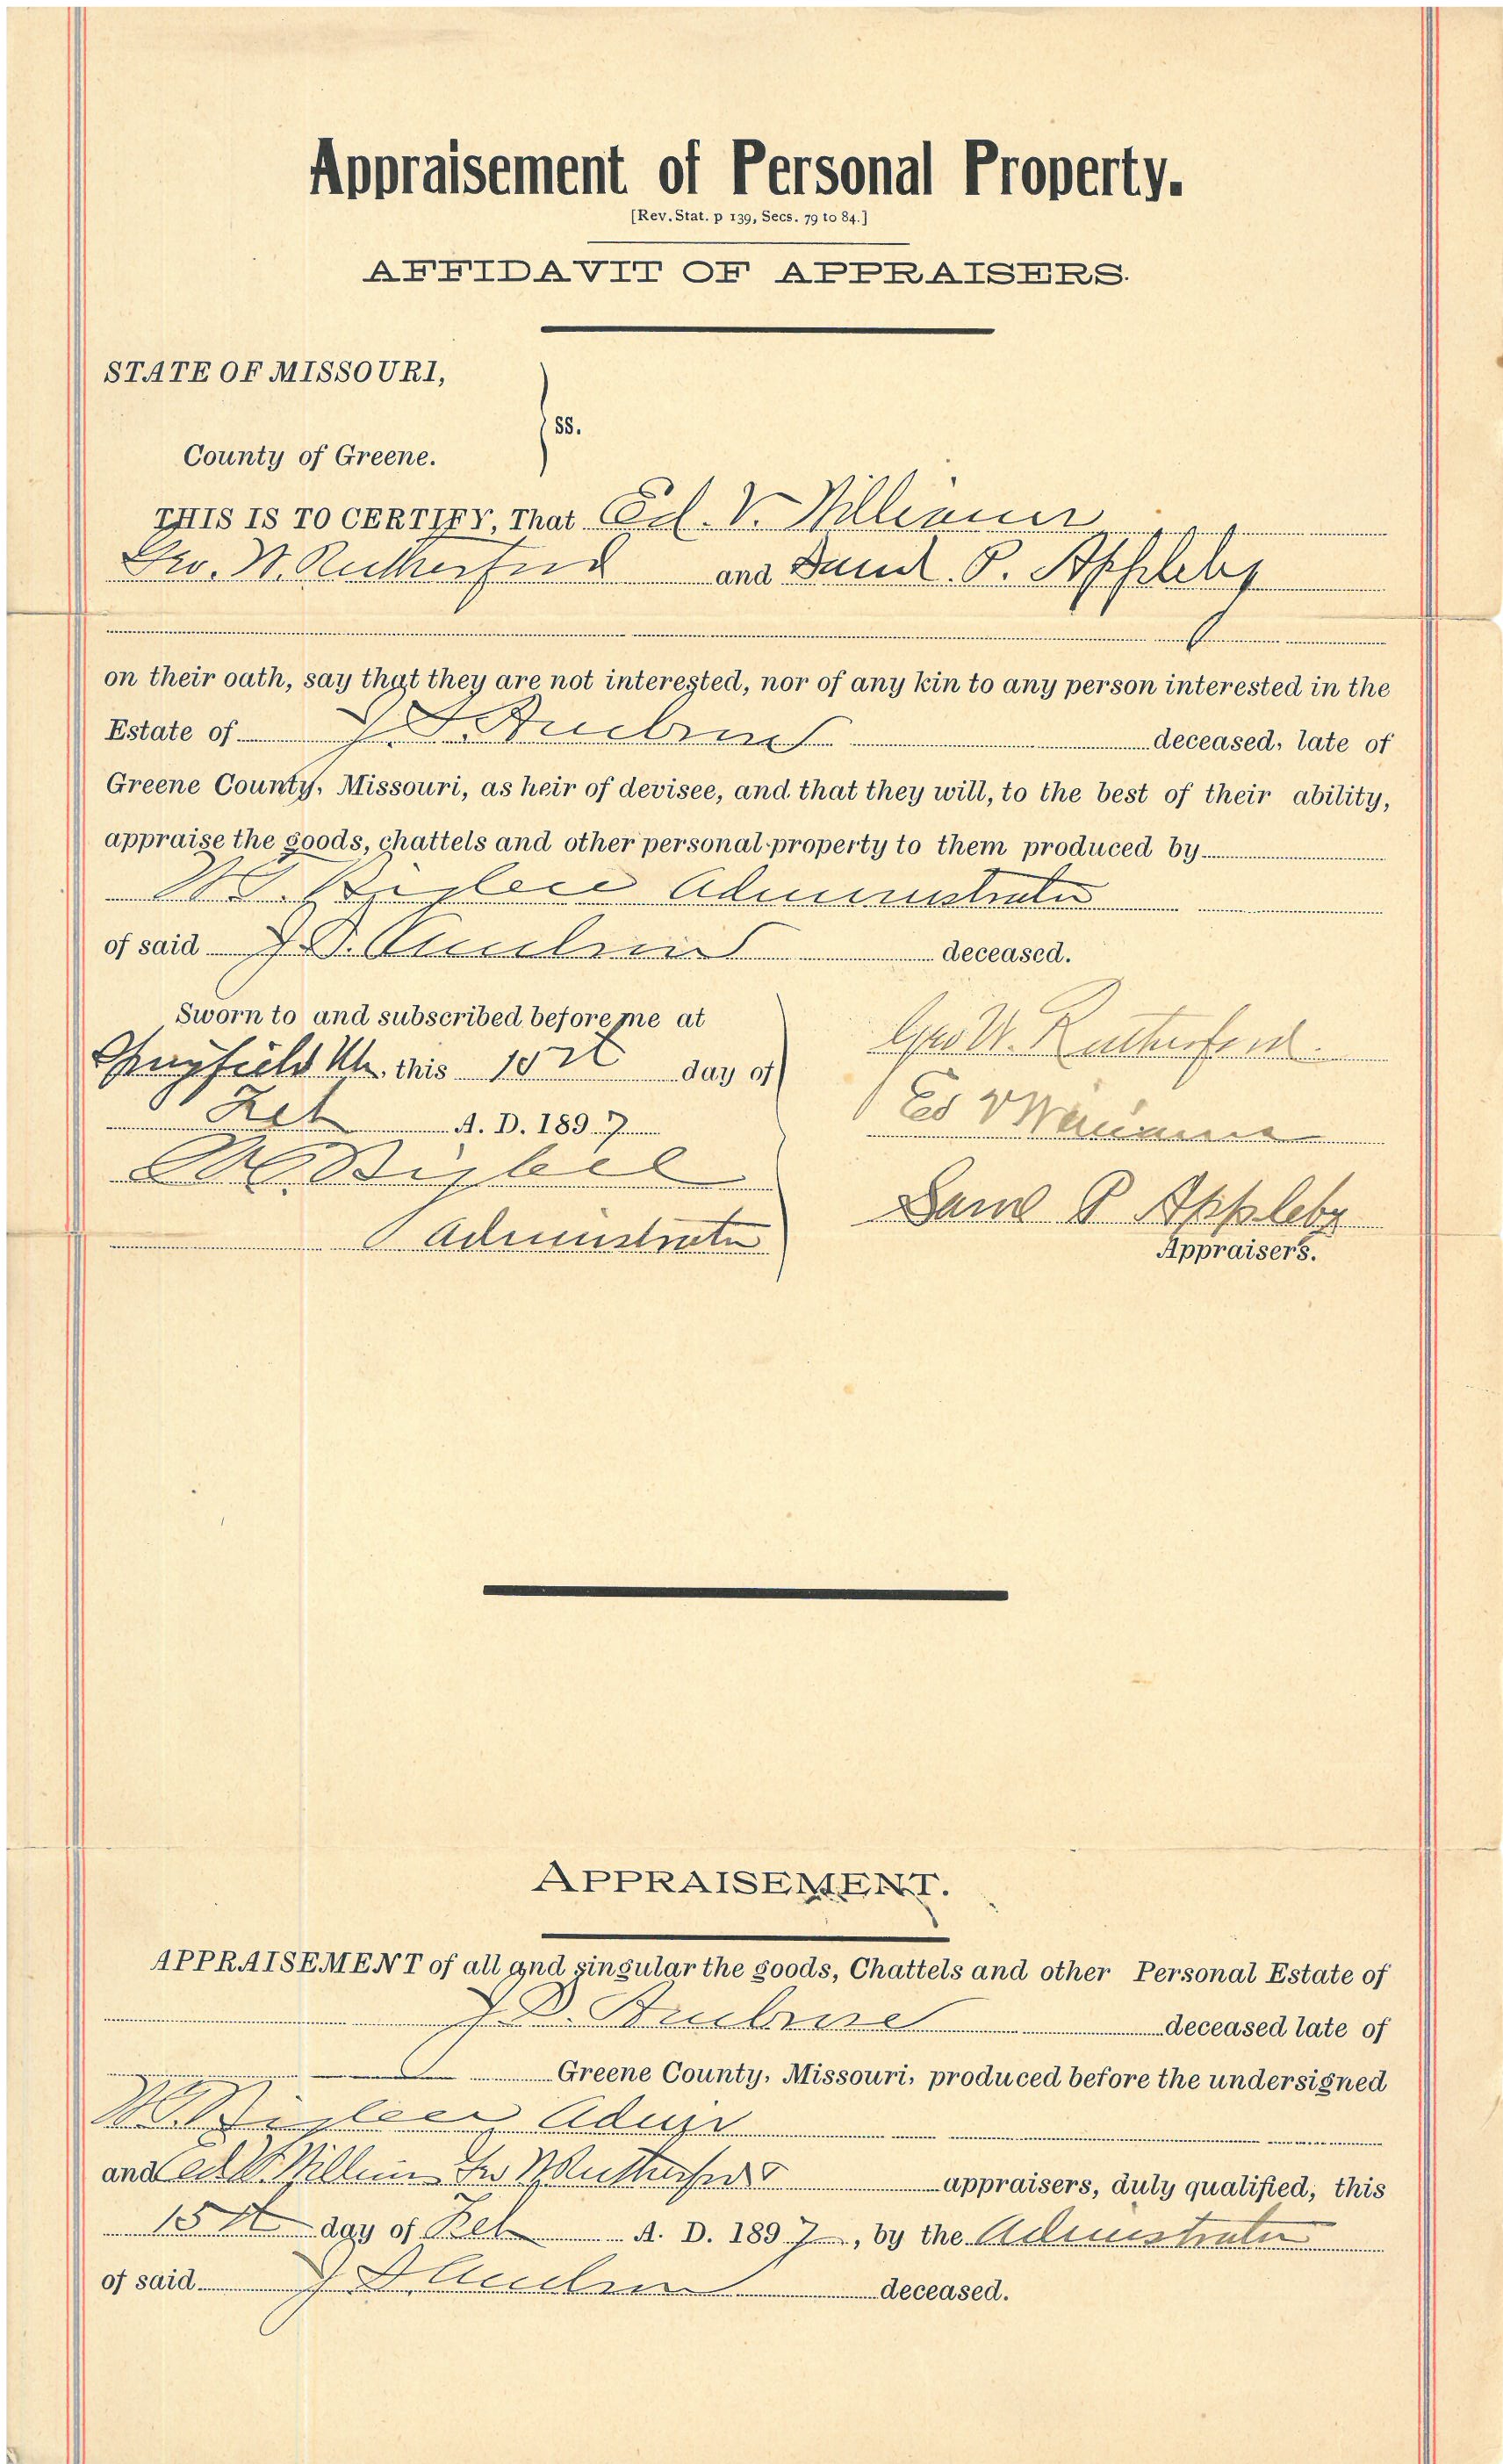 Appraisement of Personal Property.
[Rev. Stat. p 139, Secs. 79 to 84.]
AFFIDAVIT OF APPRAISERS.
STATE OF MISSOURI,
ss.
County of Greene.
THIS IS TO CERTIFY, That Ed. V. Williams
Geo. W. Rutherford and Saml. P. Appleby
on their oath, say that they are not interested, nor of any kin to any person interested in the
Estate of J. D. deceased, late of
Greene County, Missouri, as heir of devisee, and that they will, to the best of their ability,
appraise the goods, chattels and other personal property to them produced by
Administrator
of said J. D. deceased.
Sworn to and subscribed before me at
Springfield Mo. this 15th day of
Feb A. D. 1897
Administrator
Geo W. Rutherford
Ed V Williams
Saml P Appleby
Appraisers.
APPRAISEMENT.
APPRAISEMENT of all and singular the goods, Chattels and other Personal Estate of
J. D. deceased late of
Greene County, Missouri, produced before the undersigned
Admr
and Ed V. Williams Geo W Rutherford appraisers, duly qualified, this
15th day of Feb A. D. 1897, by the Administrator
of said J D deceased.